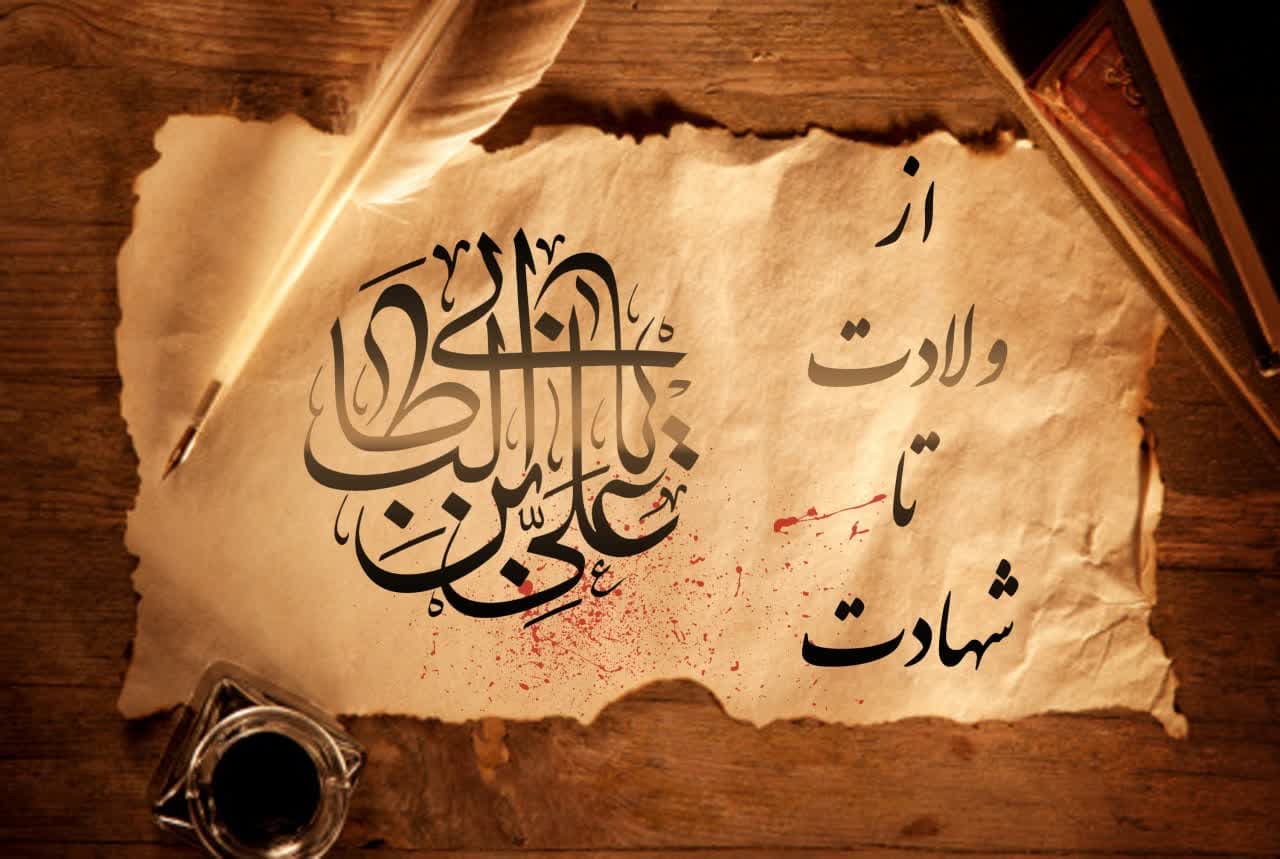 از
ولادت
تا
شهادت
یا علی بن ابی طالب